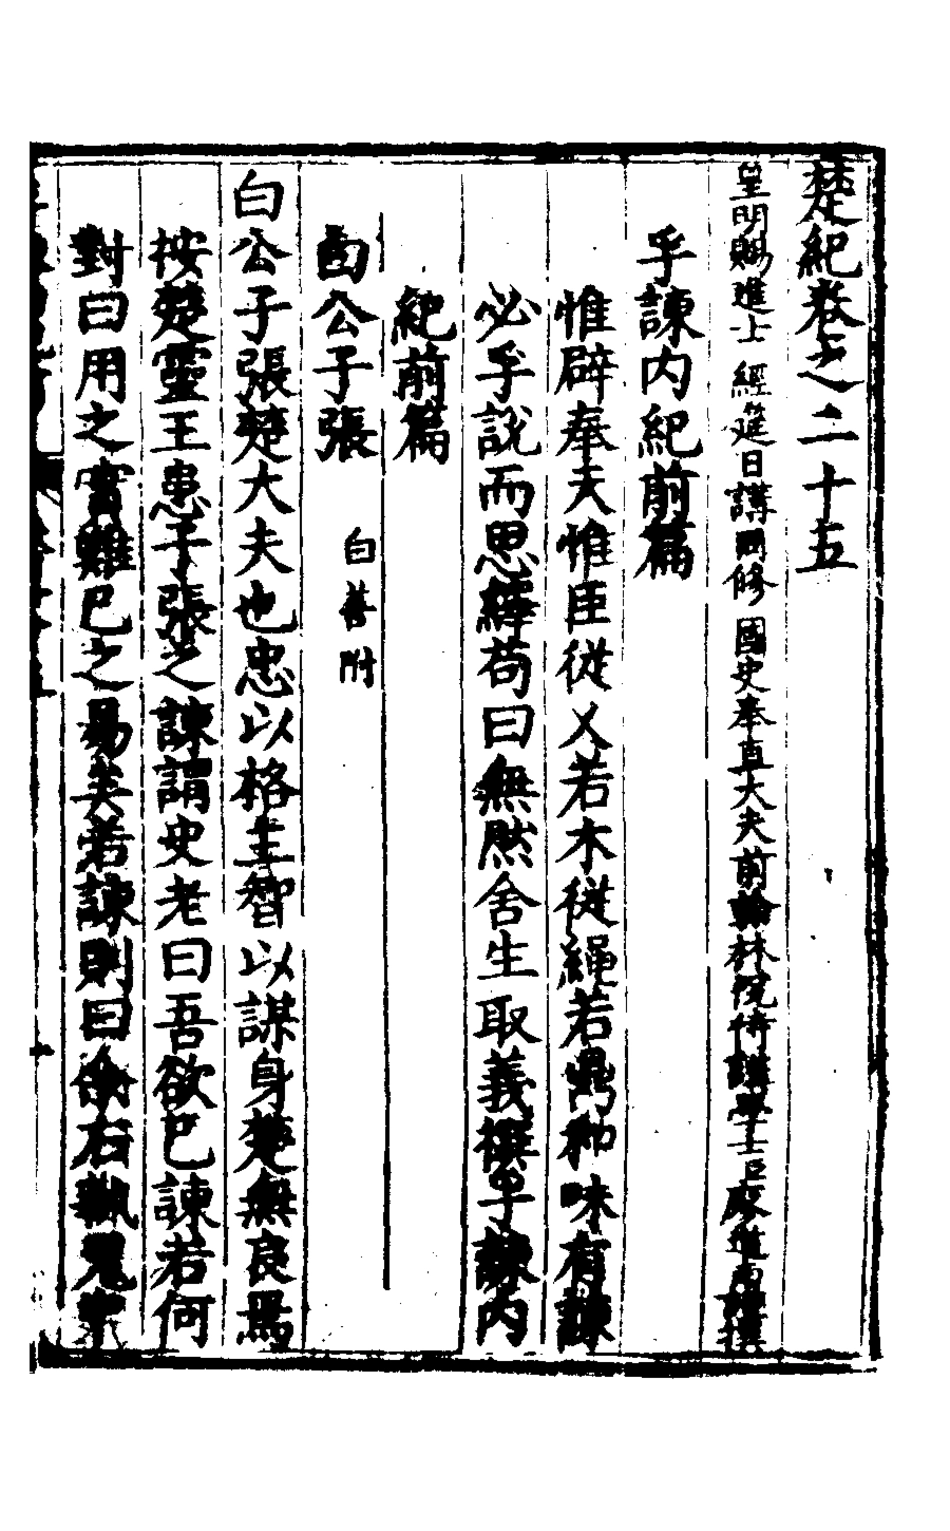 楚紀卷之二十五
皇明賜進士 經筵日講 修 國史奉直大夫前翰林院侍講學士臣廖道南謹撰
孚諫内紀前篇
惟辟奉天惟臣從乂若木從繩若鼎和味有諫
必孚說而思繹苟曰無然舍生取義撰孚諫内
紀前篇
白公子張 白善附
白公子張楚大夫也忠以格主智以謀身楚無良焉
按楚靈王患子張之諫謂史老曰吾欲已諫若何
對曰用之實難已之易矣若諫則曰余右執鬼